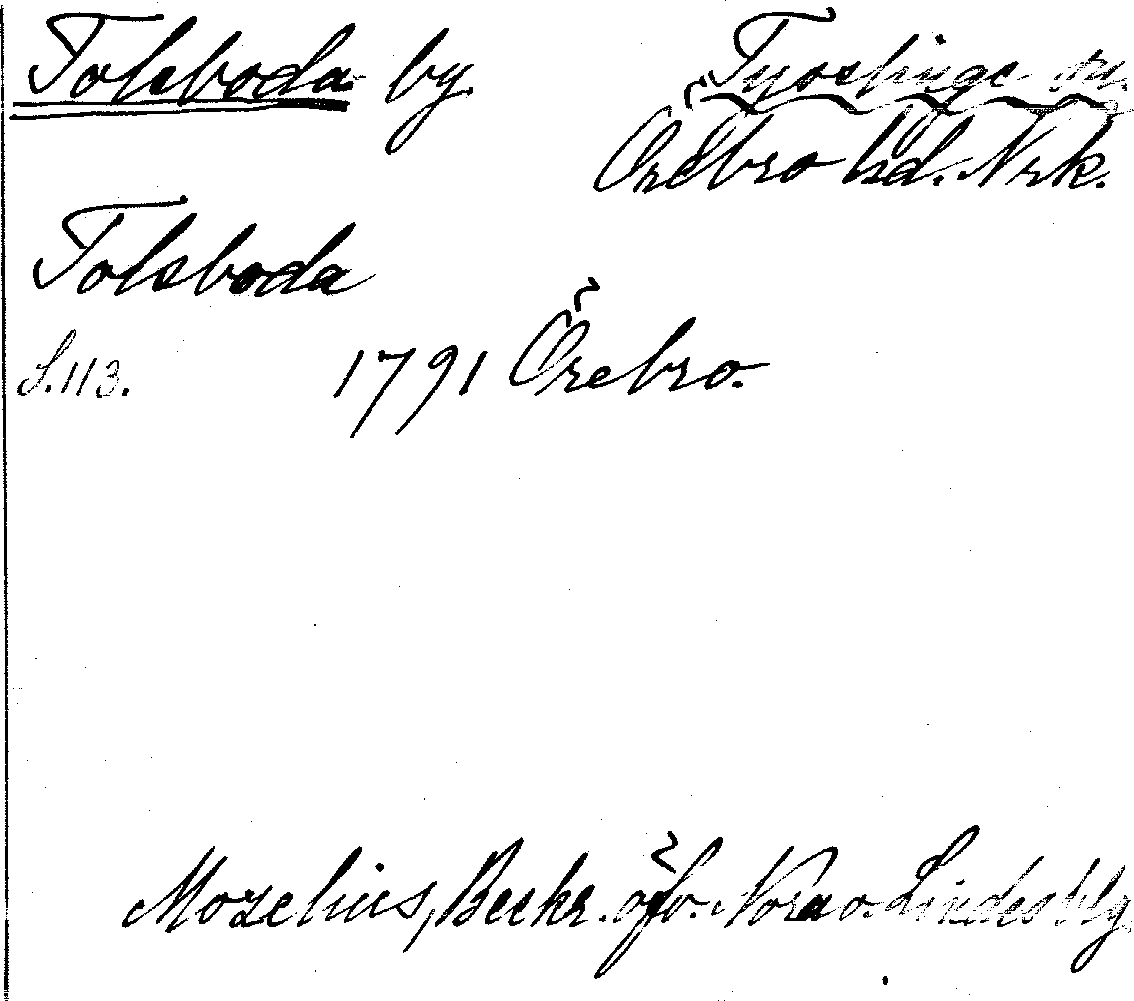 Tolsboda by Tysslinge sn.
Örebro hd. Nrk.
Tolsboda
S. 113. 1791 Örebro.
Mozelius, Beskr. öfv. Nora o. Lindes blg.